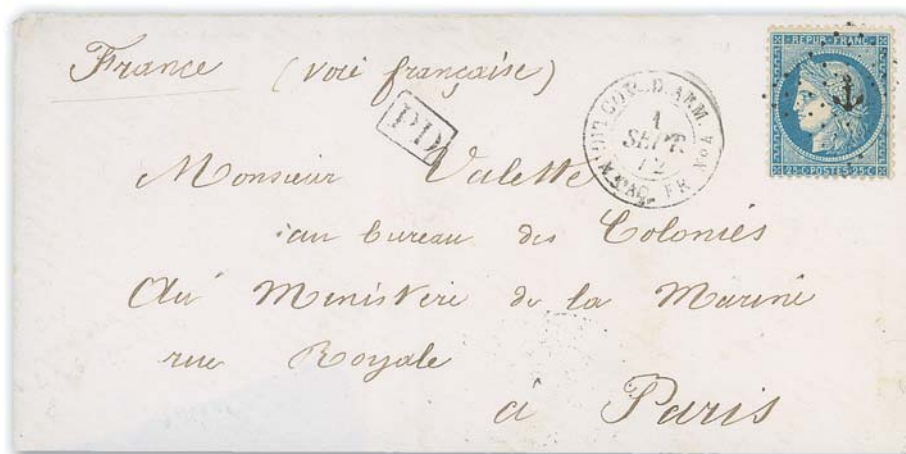 France (voie française)
PD
COR. D. ARM.
1
SEPT.
72
PAQ. FR. No 4
REPUB. FRANC.
25 C POSTES 25 C
Monsieur Valette
au bureau des Colonies
Au Ministère de la Marine
rue Royale
à Paris